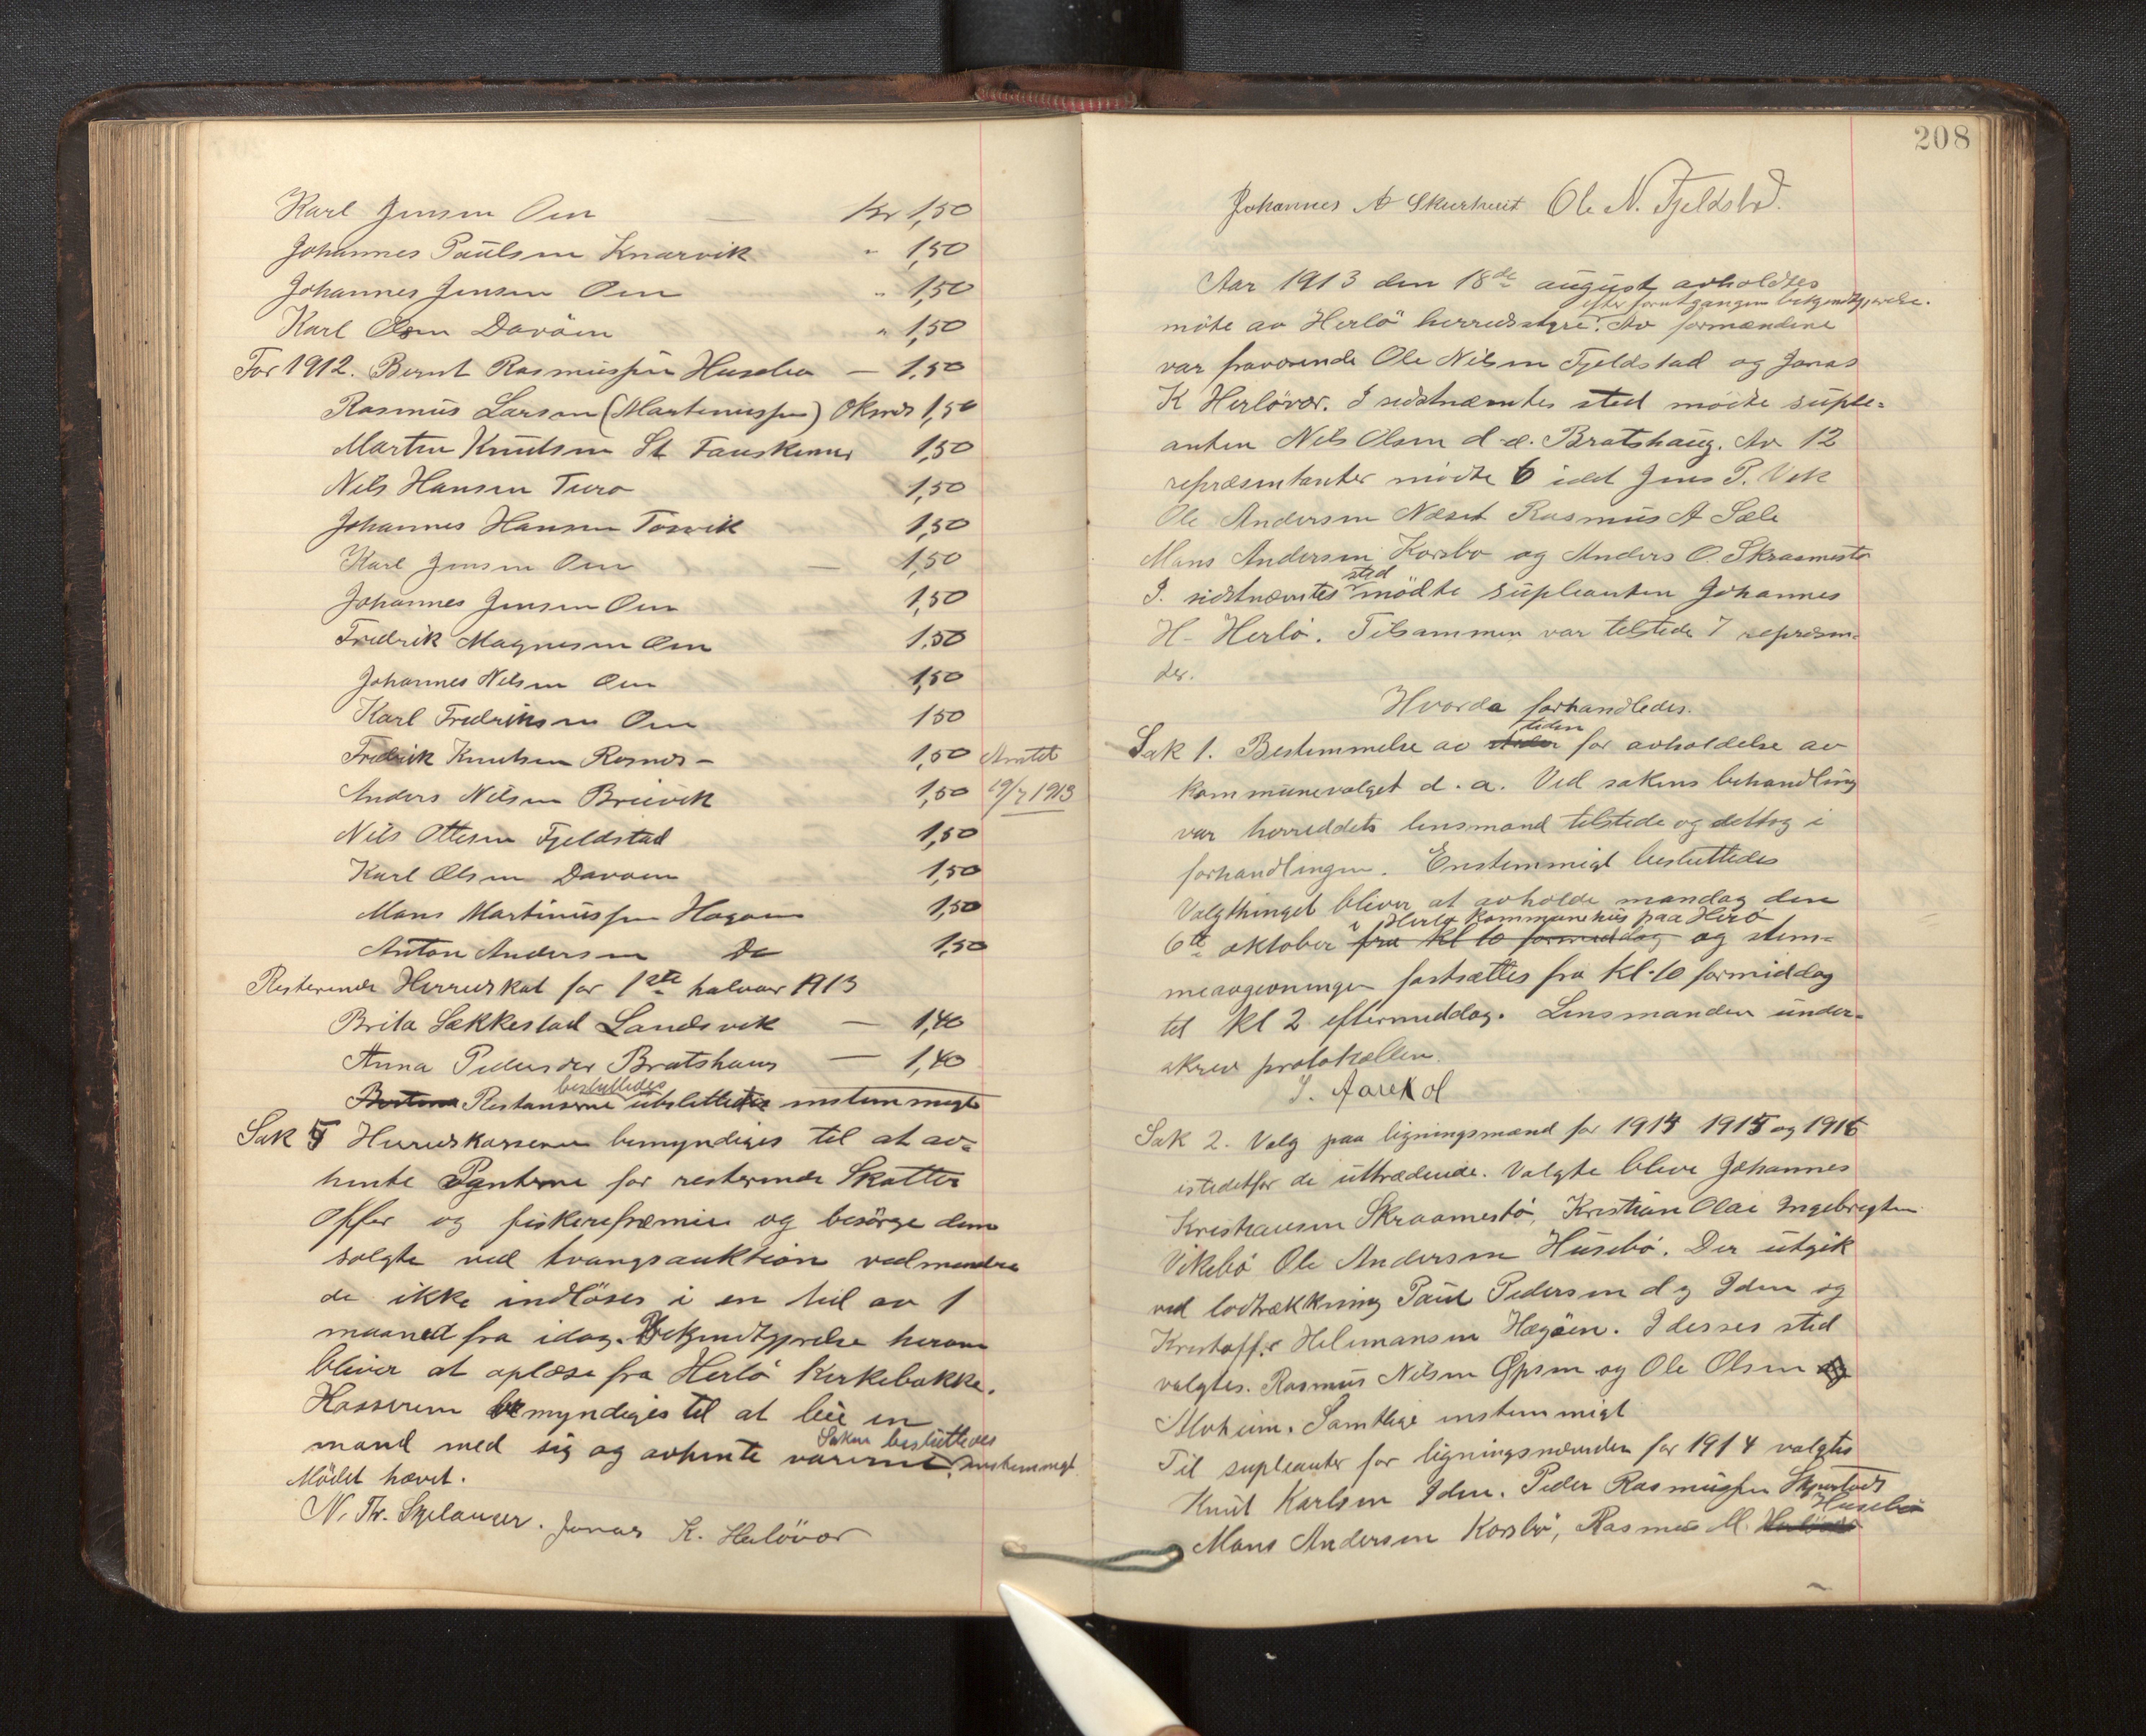 Karl Jensen Oen — Kr 1,50
Johannes Paulsen Knarvik " 1,50
Johannes Jensen Oen " 1,50
Karl Olsen Davöen " 1,50
For 1912. Bernt Rasmussen Husebø — 1.50
Rasmus Larsen (Martinussen) Oksnes 1,50
Martin Knutsen St. 1,50
Nils Hansen Turø 1,50
Johannes Hansen Tosvik 1,50
Karl Jensen Oen — 1,50
Johannes Jensen Oen 1,50
Fredrik Magnesen Oen 1.50
Johannes Nilsen Oen 1,50
Karl Fredriksen Oen 150
Fredrik Knutsen Rosnes - 1,50 Anulet
Anders Nilsen Breivik 1,50 19/7 1913
Nils Ottesen Fjeldstad 1,50
Karl Olsen Davøen 1,50
Mons Martinussen Hagøen 1,50
Anton Andersen Do 1,50
Resterende Herredskat for 1ste halvaar 1913
Brita Sækkestad Landsvik — 1,40
Anna Pedersdr Bratshaug — 1,40
besluttedes
Restanserne utslettedes enstemmigt
Sak 5 Herredskasseren bemyndiges til at av-
hente Pantene for resterende Skatter
Offer og fiskerepræmier og besörge dem
solgte ved tvangsauktion vedmindre
de ikke indlöses i en tid av 1
maaned fra idag. Bekjendtgjørelse herom
bliver at oplæse fra Herlö Kirkebakke.
Kasseren bemyndiges til at leie en
Saken besluttedes
mand med sig og avhente varerne. enstemmigt
Mödet hævet.
N. Th. Skjelanger. Jonas K. Herlövær
208
Johannes A Skurtveit Ole N. Fjeldstad.
Aar 1913 den 18de august avholdtes
efter forutgangen bekjendtgjørelse.
möte av Herlö herredsstyre. Av formændene
var fraværende Ole Nilsen Fjeldstad og Jonas
K Herlövær. I sidstnæmtes sted mödte suple-
anten Nils Olsen d. e. Bratshaug. Av 12
repræsentanter mödte 6 idet Jens P. Vik
Ole Andersen Næset Rasmus A Sæle
Mons Andersen Korsbø og Anders O. Skraamestø
sted
I. sidstnævntes mödte supleanten Johannes
H- Herlö. Tilsammen var tilstede 7 repræsen-
der.
Hvorda forhandledes.
tiden
Sak 1. Bestemmelse av for avholdelse av
kommunevalget d. a. Ved sakens behandling
var herreddets lensmand tilstede og deltog i
forhandlingen. Enstemmigt besluttedes
Valgthinget bliver at avholde mandag den
i Herlø kommunehus paa Herö
6te oktober fra kl 10 formiddag og stem-
meavgivningen fastsættes fra kl. 10 formiddag
til kl 2 eftermiddag. Lensmanden under-
skrev protokollen.
Sak 2. Valg paa ligningsmænd for 1914 1915 og 1916
istedetfor de uttrædende. Valgte bleve Johannes
Kristiansen Skraamestö, Kristian Olai Ingebrigtsen
Vikebö Ole Andersen Husebö. Der utgik
ved lodtrækkning Paul Pedersen d y Iden og
Kristoffer Helmansen Hægöen. I desses sted
valgtes. Rasmus Nilsen Gpsen og Ole Olsen og
Alvheim. Samtlige enstemmigt
Til supleanter for ligningsnævnden for 1914 valgtes
Knut Karlsen Iden. Peder Rasmussen Skjurtveit
Husebö
Mons Andersen Korsbö, Rasmus M. Herlövær